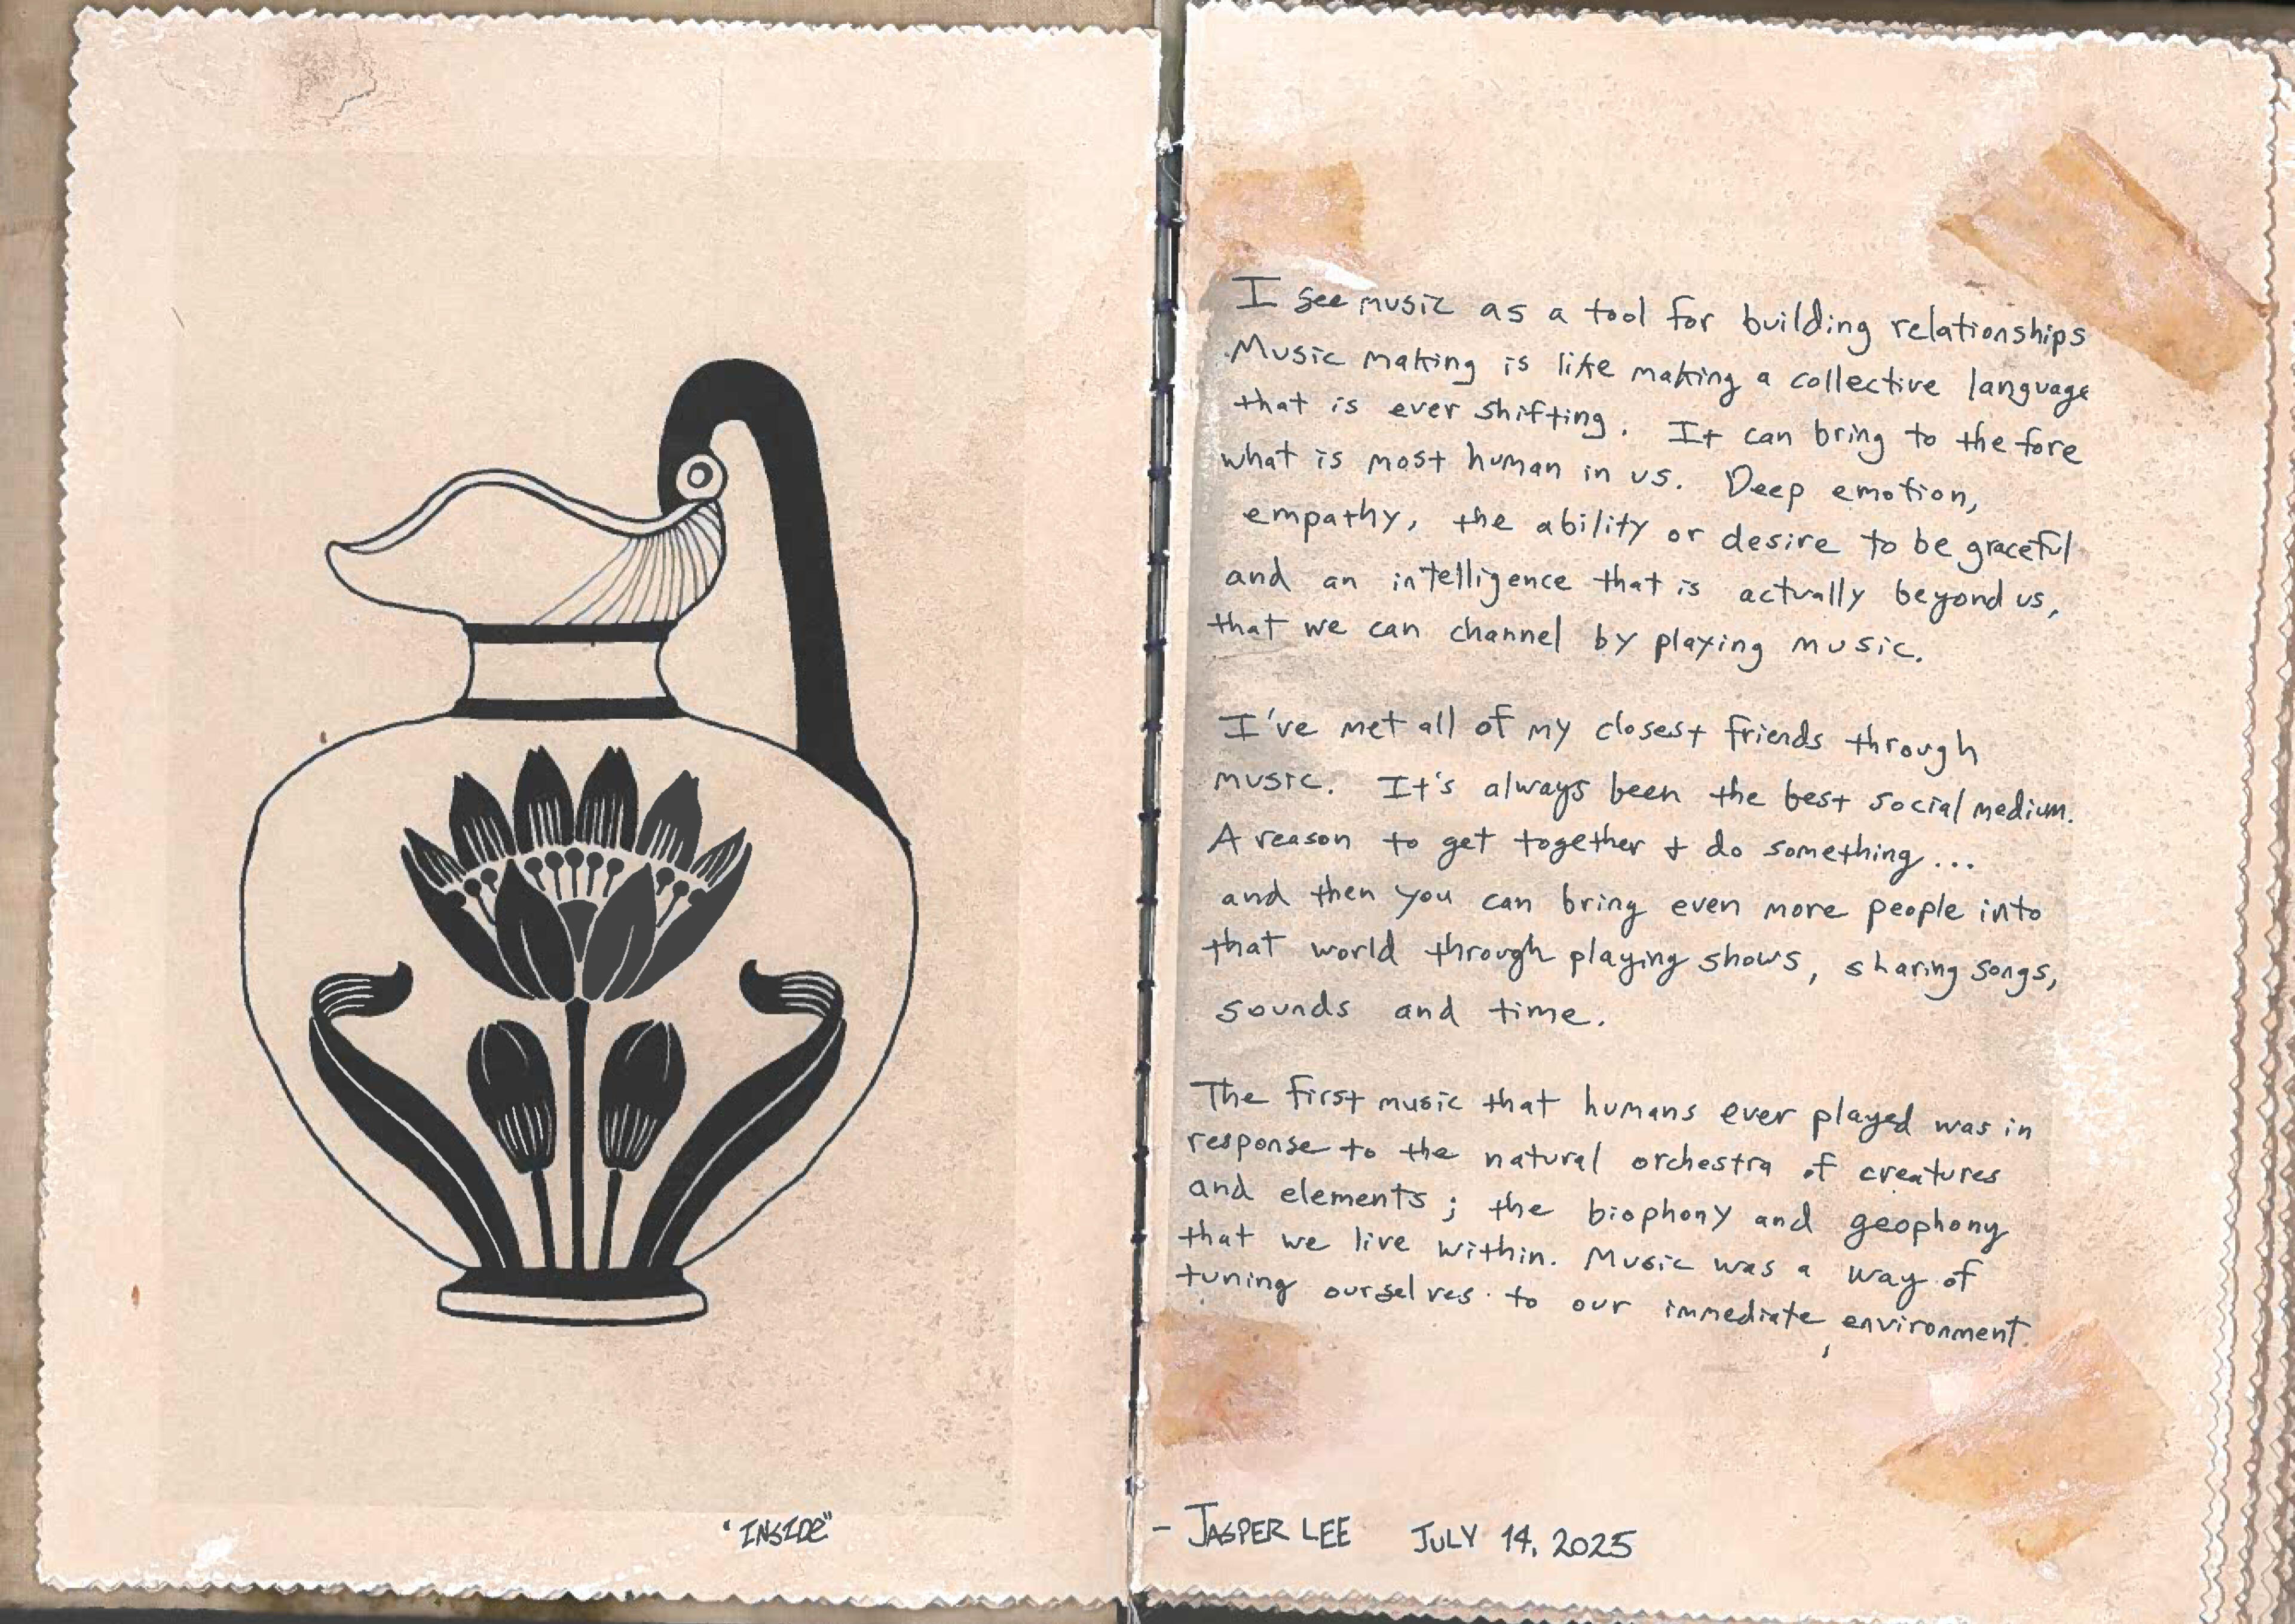 "INSIDE"
I see music as a tool for building relationships
Music making is like making a collective language
that is ever shifting. It can bring to the fore
what is most human in us. Deep emotion,
empathy, the ability or desire to be graceful
and an intelligence that is actually beyond us,
that we can channel by playing music.
I've met all of my closest friends through
music. It's always been the best social medium.
A reason to get together + do something...
and then you can bring even more people into
that world through playing shows, sharing songs,
sounds and time.
The first music that humans ever played was in
response to the natural orchestra of creatures
and elements; the biophony and geophony
that we live within. Music was a way of
tuning ourselves to our immediate environment.
- JASPER LEE JULY 14, 2025